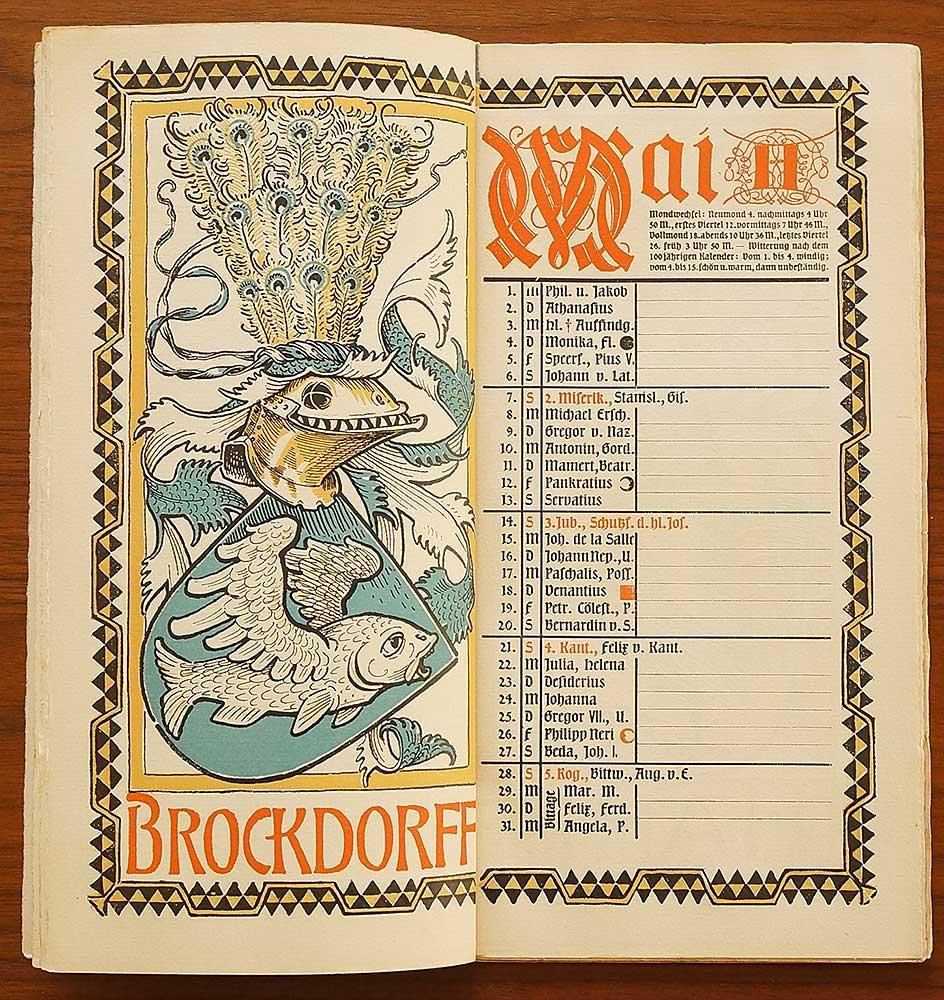 BROCKDORFF
Mai H
Mondwechsel: Neumond 4. nachmittags 4 Uhr
50 M., erstes Viertel 12. vormittags 7 Uhr 46 M.,
Vollmond 18. abends 10 Uhr 36 M., letztes Viertel
26. früh 3 Uhr 50 M. — Witterung nach dem
100jährigen Kalender: Vom 1. bis 4. windig;
vom 4. bis 15. schön u. warm, dann unbeständig.
1. M Phil. u. Jakob
2. D Athanasius
3. M hl. † Auffindg.
4. D Monika, Fl.
5. F Pius V.
6. S Johann v. Lat.
7. S 2. Miserik., Stanisl., Gis.
8. M Michael Ersch.
9. D Gregor v. Naz.
10. M Antonin, Gord.
11. D Mamert, Beatr.
12. F Pankratius
13. S Servatius
14. S 3. Jub., Schutzf. d. hl. Jos.
15. M Joh. de la Salle
16. D Johann Nep., U.
17. M Paschalis, Poss.
18. D Venantius
19. F Petr. Cölest., P.
20. S Bernardin v. S.
21. S 4. Kant., Felix v. Kant.
22. M Julia, Helena
23. D Desiderius
24. M Johanna
25. D Gregor VII., U.
26. F Philipp Neri
27. S Beda, Joh. I.
28. S 5. Rog., Bittw., Aug. v. E.
29. M Bittage Mar. M.
30. D Felix, Ferd.
31. M Angela, P.